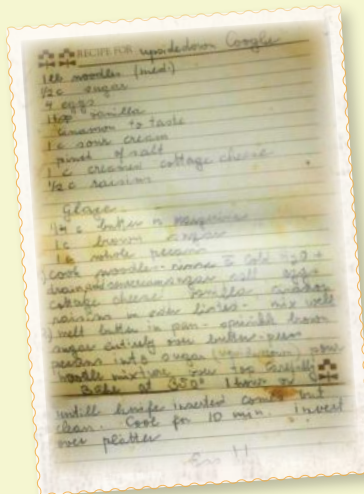 RECIPE FOR upsidedown Coogle
1 lb noodles (med.)
1/2 c sugar
4 eggs
1 tsp vanilla
cinnamon to taste
1 c sour cream
pinch of salt
1 c creamed cottage cheese
1/2 c raisins
Glaze
1/4 c butter or margarine
1 c brown sugar
1 lb whole pecans
1) cook noodles - rinse in cold H2O +
drain add sour cream sugar salt eggs
cottage cheese vanilla cinnamon
raisins in order listed - mix well
2) melt butter in pan - sprinkle brown
sugar entirely over butter - press
pecans into sugar pour
noodle mixture over top carefully
Bake at 350° 1 hour or
untill knife inserted comes out
clean. Cool for 10 min. Invert
over platter